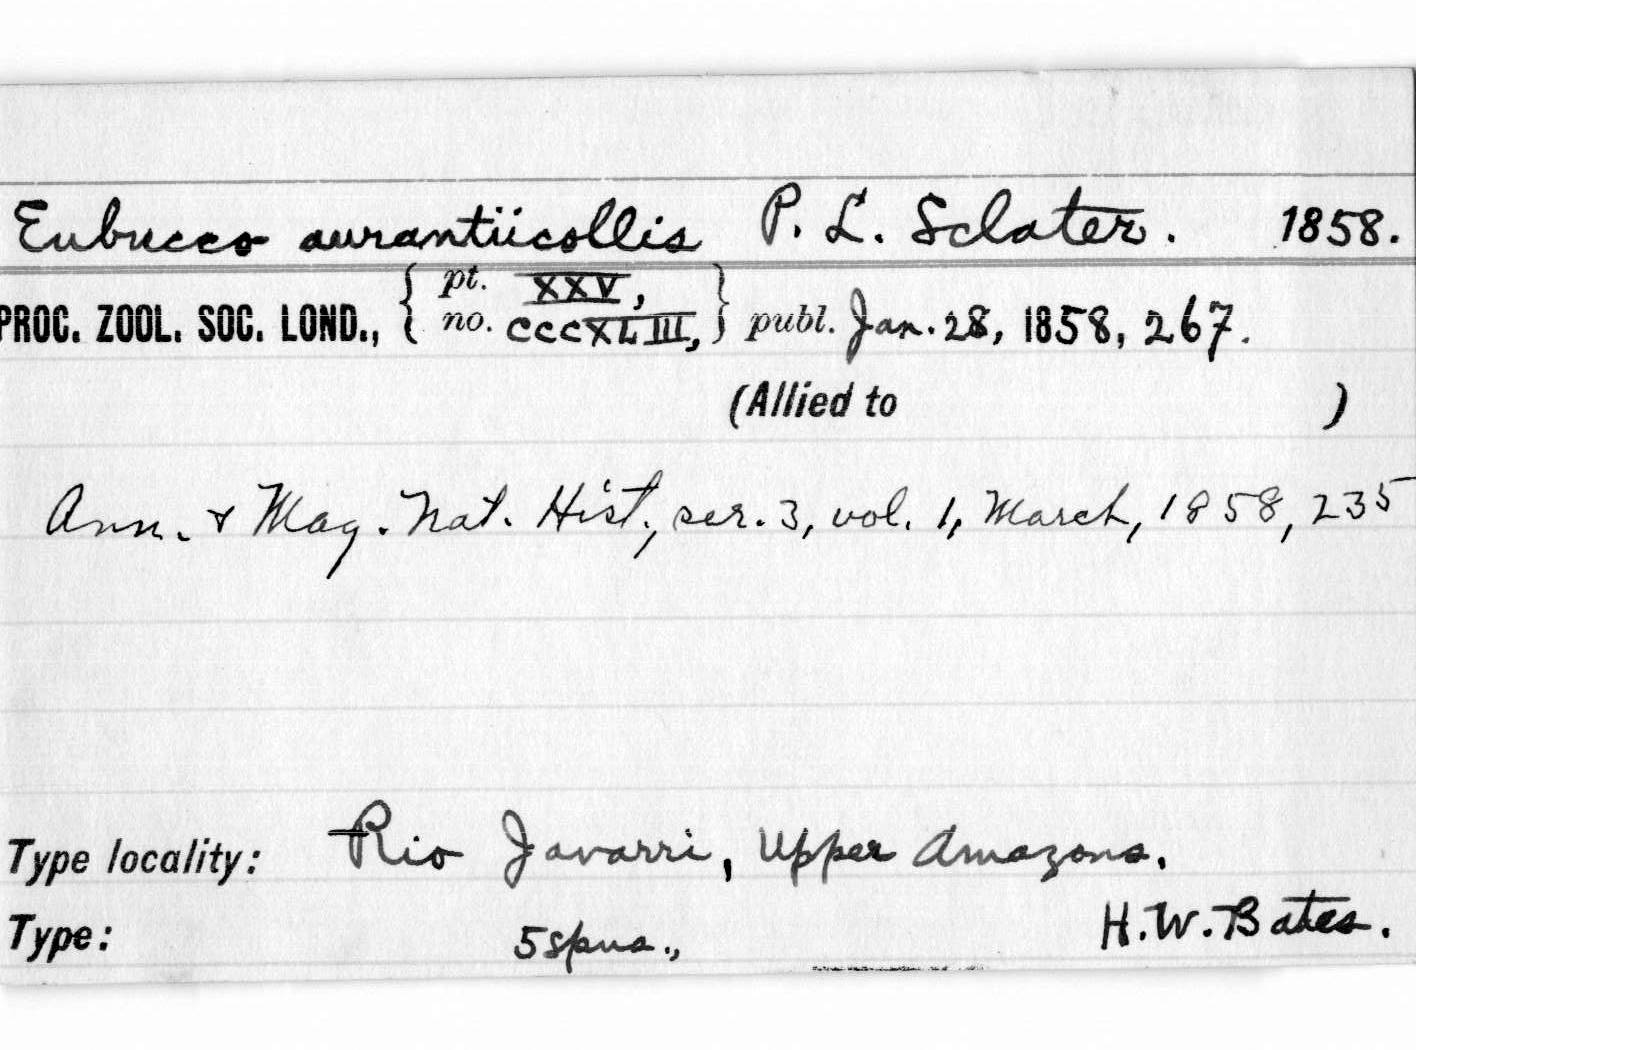 Eubucco aurantiicollis P. L. Sclater. 1858.
PROC. ZOOL. SOC. LOND., { pt. XXV, no. CCCXLIII, } publ. Jan. 28, 1858, 267.
(Allied to )
Ann. & Mag. Nat. Hist., ser. 3, vol. 1, March, 1858, 235
Type locality: Rio Javarri, Upper Amazons.
Type: 5 spns., H. W. Bates.